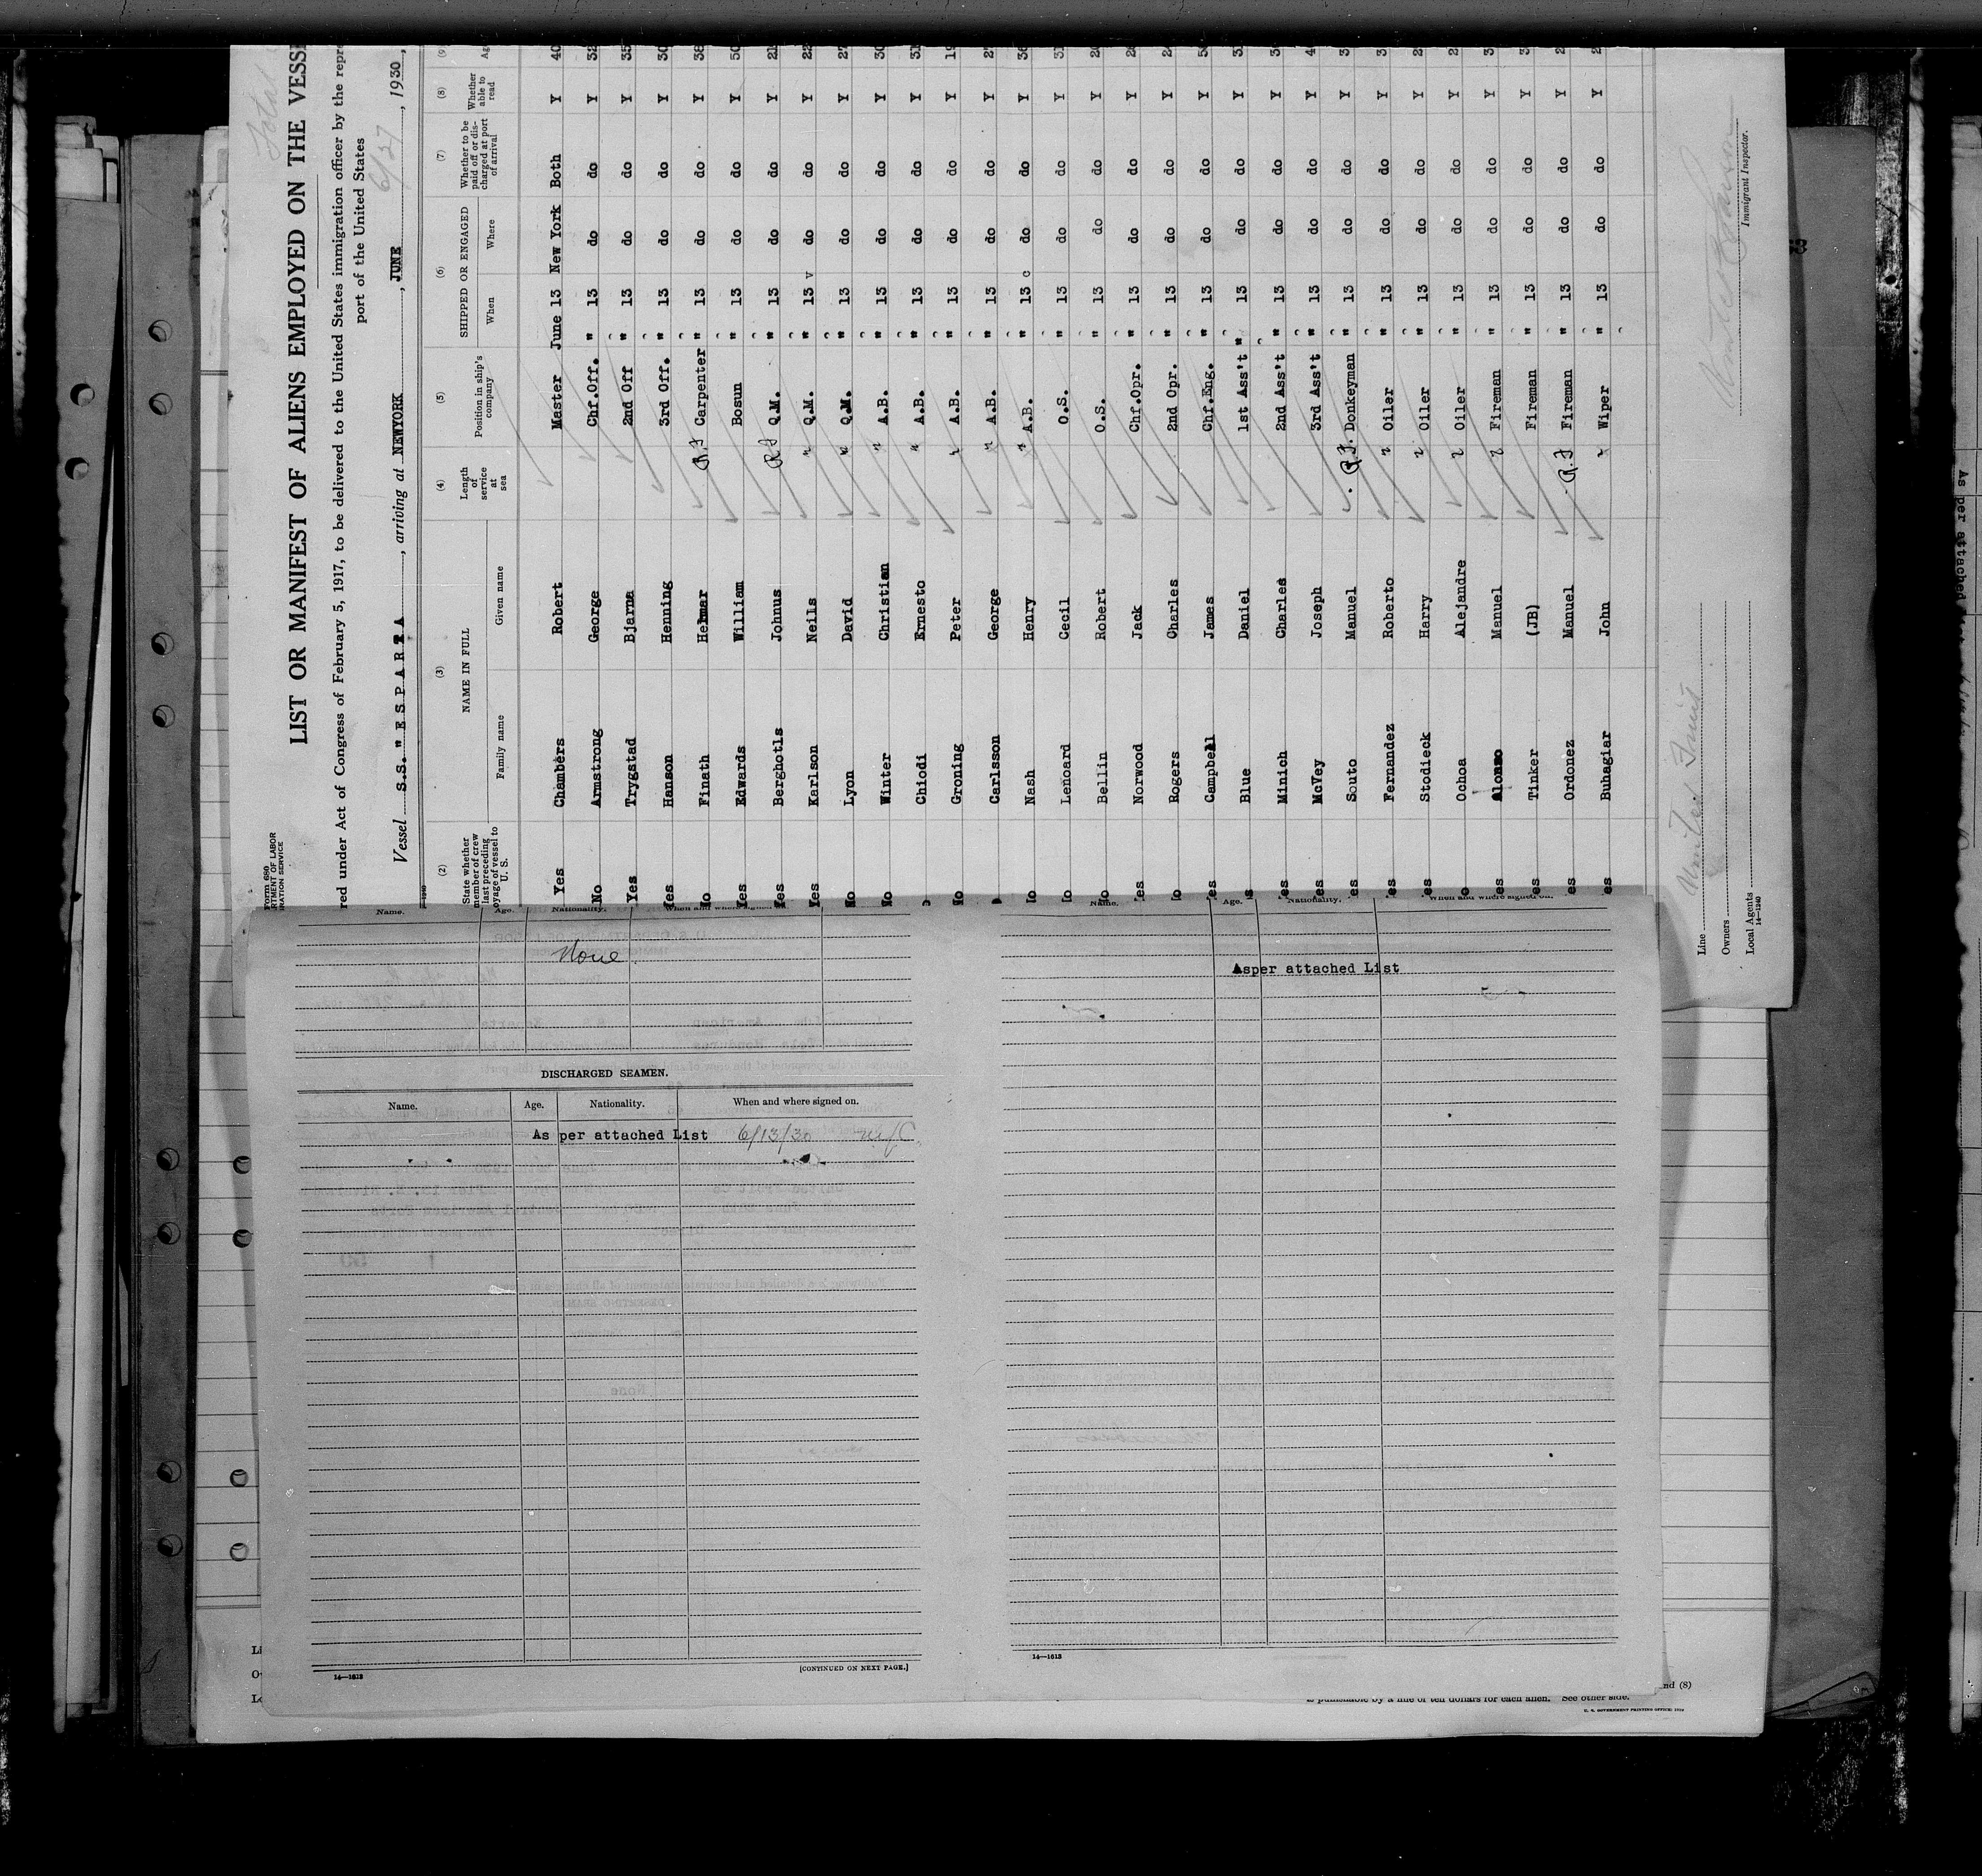 Form 680
LIST OR MANIFEST OF ALIENS EMPLOYED ON THE VESS
red under Act of Congress of February 5, 1917, to be delivered to the United States immigration officer by the repre
port of the United States
Vessel S.S. "ESPARTA , arriving at NEWYORK , JUNE 6/27 , 1930,
(2) (3) (4) (5) (6) (7) (8) (9)
State whether member of crew last preceding voyage of vessel to U. S. NAME IN FULL Family name Given name Length of service at sea Position in ship's company SHIPPED OR ENGAGED When Where Whether to be paid off or discharged at port of arrival Whether able to read Ag
Yes Chambers Robert Master June 13 New York Both Y 40
No Armstrong George Chf.Off. " 13 do do Y 32
Yes Trygstad Bjarne 2nd Off " 13 do do Y 35
es Hanson Henning 3rd Off. " 13 do do Y 30
No Finath Helmar R.F Carpenter " 13 do do Y 38
Yes Edwards William Bosun " 13 do do Y 50
Yes Berghotls Johnus RF Q.M. " 13 do do Y 21
Yes Karlson Neils " Q.M. " 13 do do Y 22
No Lyon David " Q.M. " 13 do do Y 27
No Winter Christian " A.B. " 13 do do Y 30
Chiodi Ernesto " A.B. " 13 do do Y 31
No Groning Peter " A.B. " 13 do do Y 19
es Carlsson George " A.B. " 13 do do Y 27
o Nash Henry " A.B. " 13 do do Y 36
o Lenoard Cecil O.S. " 13 do do Y 31
No Bellin Robert O.S. " 13 do do Y 20
es Norwood Jack Chf.Opr. " 13 do do Y
o Rogers Charles 2nd Opr. " 13 do do Y
es Campbell James Chf.Eng. " 13 do do Y
s Blue Daniel 1st Ass't " 13 do do Y
es Minich Charles 2nd Ass't " 13 do do Y
es McVey Joseph 3rd Ass't " 13 do do Y
es Souto Manuel R.F. Donkeyman " 13 do do Y
es Fernandez Roberto " Oiler " 13 do do Y
es Stodieck Harry " Oiler " 13 do do Y
o Ochoa Alejandre " Oiler " 13 do do Y
es Alonso Manuel " Fireman " 13 do do Y
es Tinker (JB) Fireman " 13 do do Y
es Ordonez Manuel R.F Fireman " 13 do do Y
es Buhagiar John " Wiper " 13 do do Y
Line United Fruit
Owners
Local Agents
14—1240
Immigrant Inspector.
Name. Age. Nationality. When and where signed on.
None
DISCHARGED SEAMEN.
Name. Age. Nationality. When and where signed on.
As per attached List 6/13/30 N.Y.C.
14—1613
[CONTINUED ON NEXT PAGE.]
Name. Age. Nationality. When and where signed on.
Asper attached List
14—1613
nd (8)
is punishable by a fine of ten dollars for each alien. See other side.
U. S. GOVERNMENT PRINTING OFFICE
As per attached